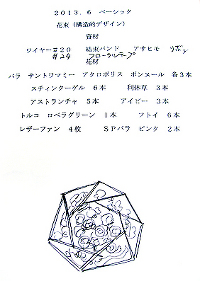 2013.6 ベーシック
花束（構造的デザイン）
資材
ワイヤー#20 結束バンド アサヒモ リボン
#24 フローラルテープ
花材
バラ サントワマミー アクロポリス ボンヌール 各3本
スティンクーグル 6本 利休草 3本
アストランチャ 5本 アイビー 3本
トルコ ロベラグリーン 1本 フトイ 6本
レザーファン 4枚 SPバラ ピンク 2本